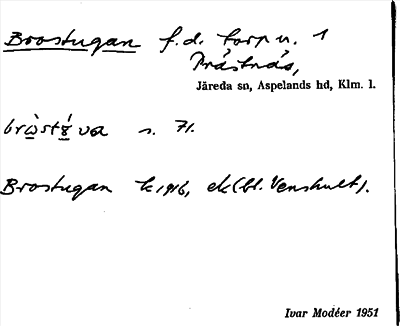 Brostugan f.d. torp u. 1
Prästnäs,
Järeda sn, Aspelands hd, Klm. l.
s. 71.
Brostugan k 1916, ek (bl. Venshult).
Ivar Modéer 1951